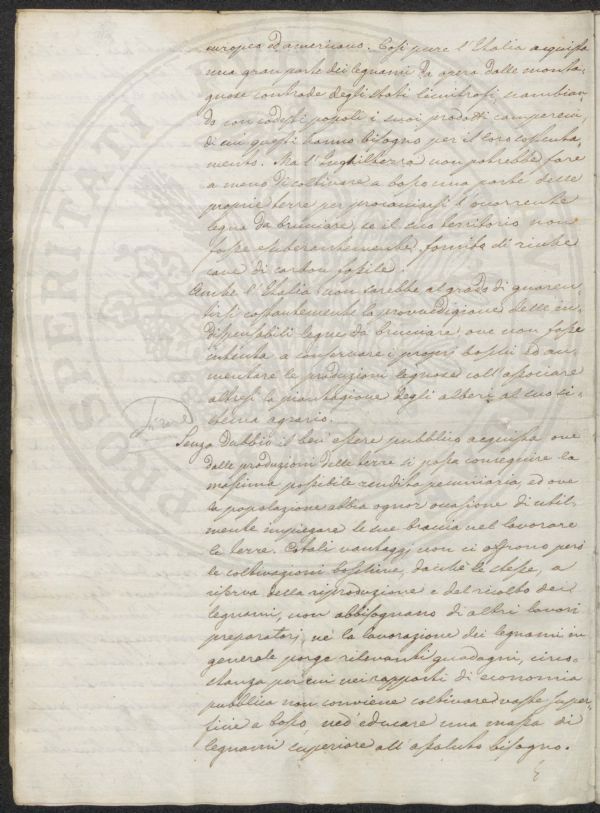 europeo ed americano. Così pure l'Italia acquista
una gran parte dei legnami da opera dalle monta-
gnose contrade degli Stati limitrofi, scambian-
do con codesti popoli i suoi prodotti camperecci,
di cui questi hanno bisogno per il loro sostenta-
mento. Ma l'Inghilterra non potrebbe fare
a meno di coltivare a bosco una parte delle
proprie terre per procacciarsi l'occorrente
legna da bruciare, se il suo territorio non
fosse esuberantemente fornito di ricche
cave di carbon fossile.
Anche l'Italia non sarebbe al grado di guaren-
tirsi costantemente la provvedigione delle in-
dispensabili legne da bruciare ove non fosse
intenta a conservare i propri boschi ed au-
mentare le produzioni legnose coll'associare
altresì la piantagione degli alberi al suo si-
stema agrario.
Senza dubbio il ben essere pubblico acquista ove
dalle produzioni delle terre si possa conseguire la
massima possibile rendita pecuniaria, ed ove
la popolazione abbia ognor occasione di util-
mente impiegare le sue braccia nel lavorare
le terre. Cotali vantaggj non ci offrono però
le coltivazioni boschive, dacchè le stesse, a
riserva della riproduzione e del ricolto dei
legnami, non abbisognano di altri lavori
preparatorj, nè la lavorazione dei legnami in
generale porge rilevanti guadagni, circo-
stanza per cui nei rapporti di economia
pubblica non conviene coltivare vaste super-
ficie a bosco, ned educare una massa di
legnami superiore all'assoluto bisogno.
PROSPERITATI